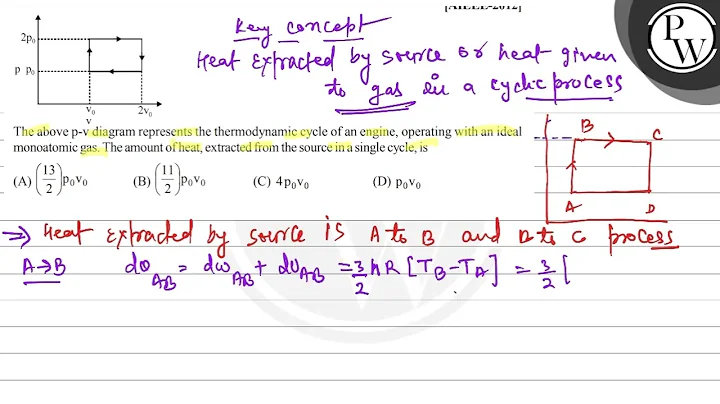 [AIEEE-2012]
2p₀
p p₀
v₀ 2v₀
v
Key concept
Heat Extracted by source or heat given
to gas in a cyclic process
PW
The above p-v diagram represents the thermodynamic cycle of an engine, operating with an ideal
monoatomic gas. The amount of heat, extracted from the source in a single cycle, is
(A) (13/2) p₀v₀ (B) (11/2) p₀v₀ (C) 4p₀v₀ (D) p₀v₀
B C
A D
⇒ Heat Extracted by source is A to B and B to C process
A→B dQ_AB = dw_AB + dU_AB = 3/2 nR [T_B - T_A] = 3/2 [